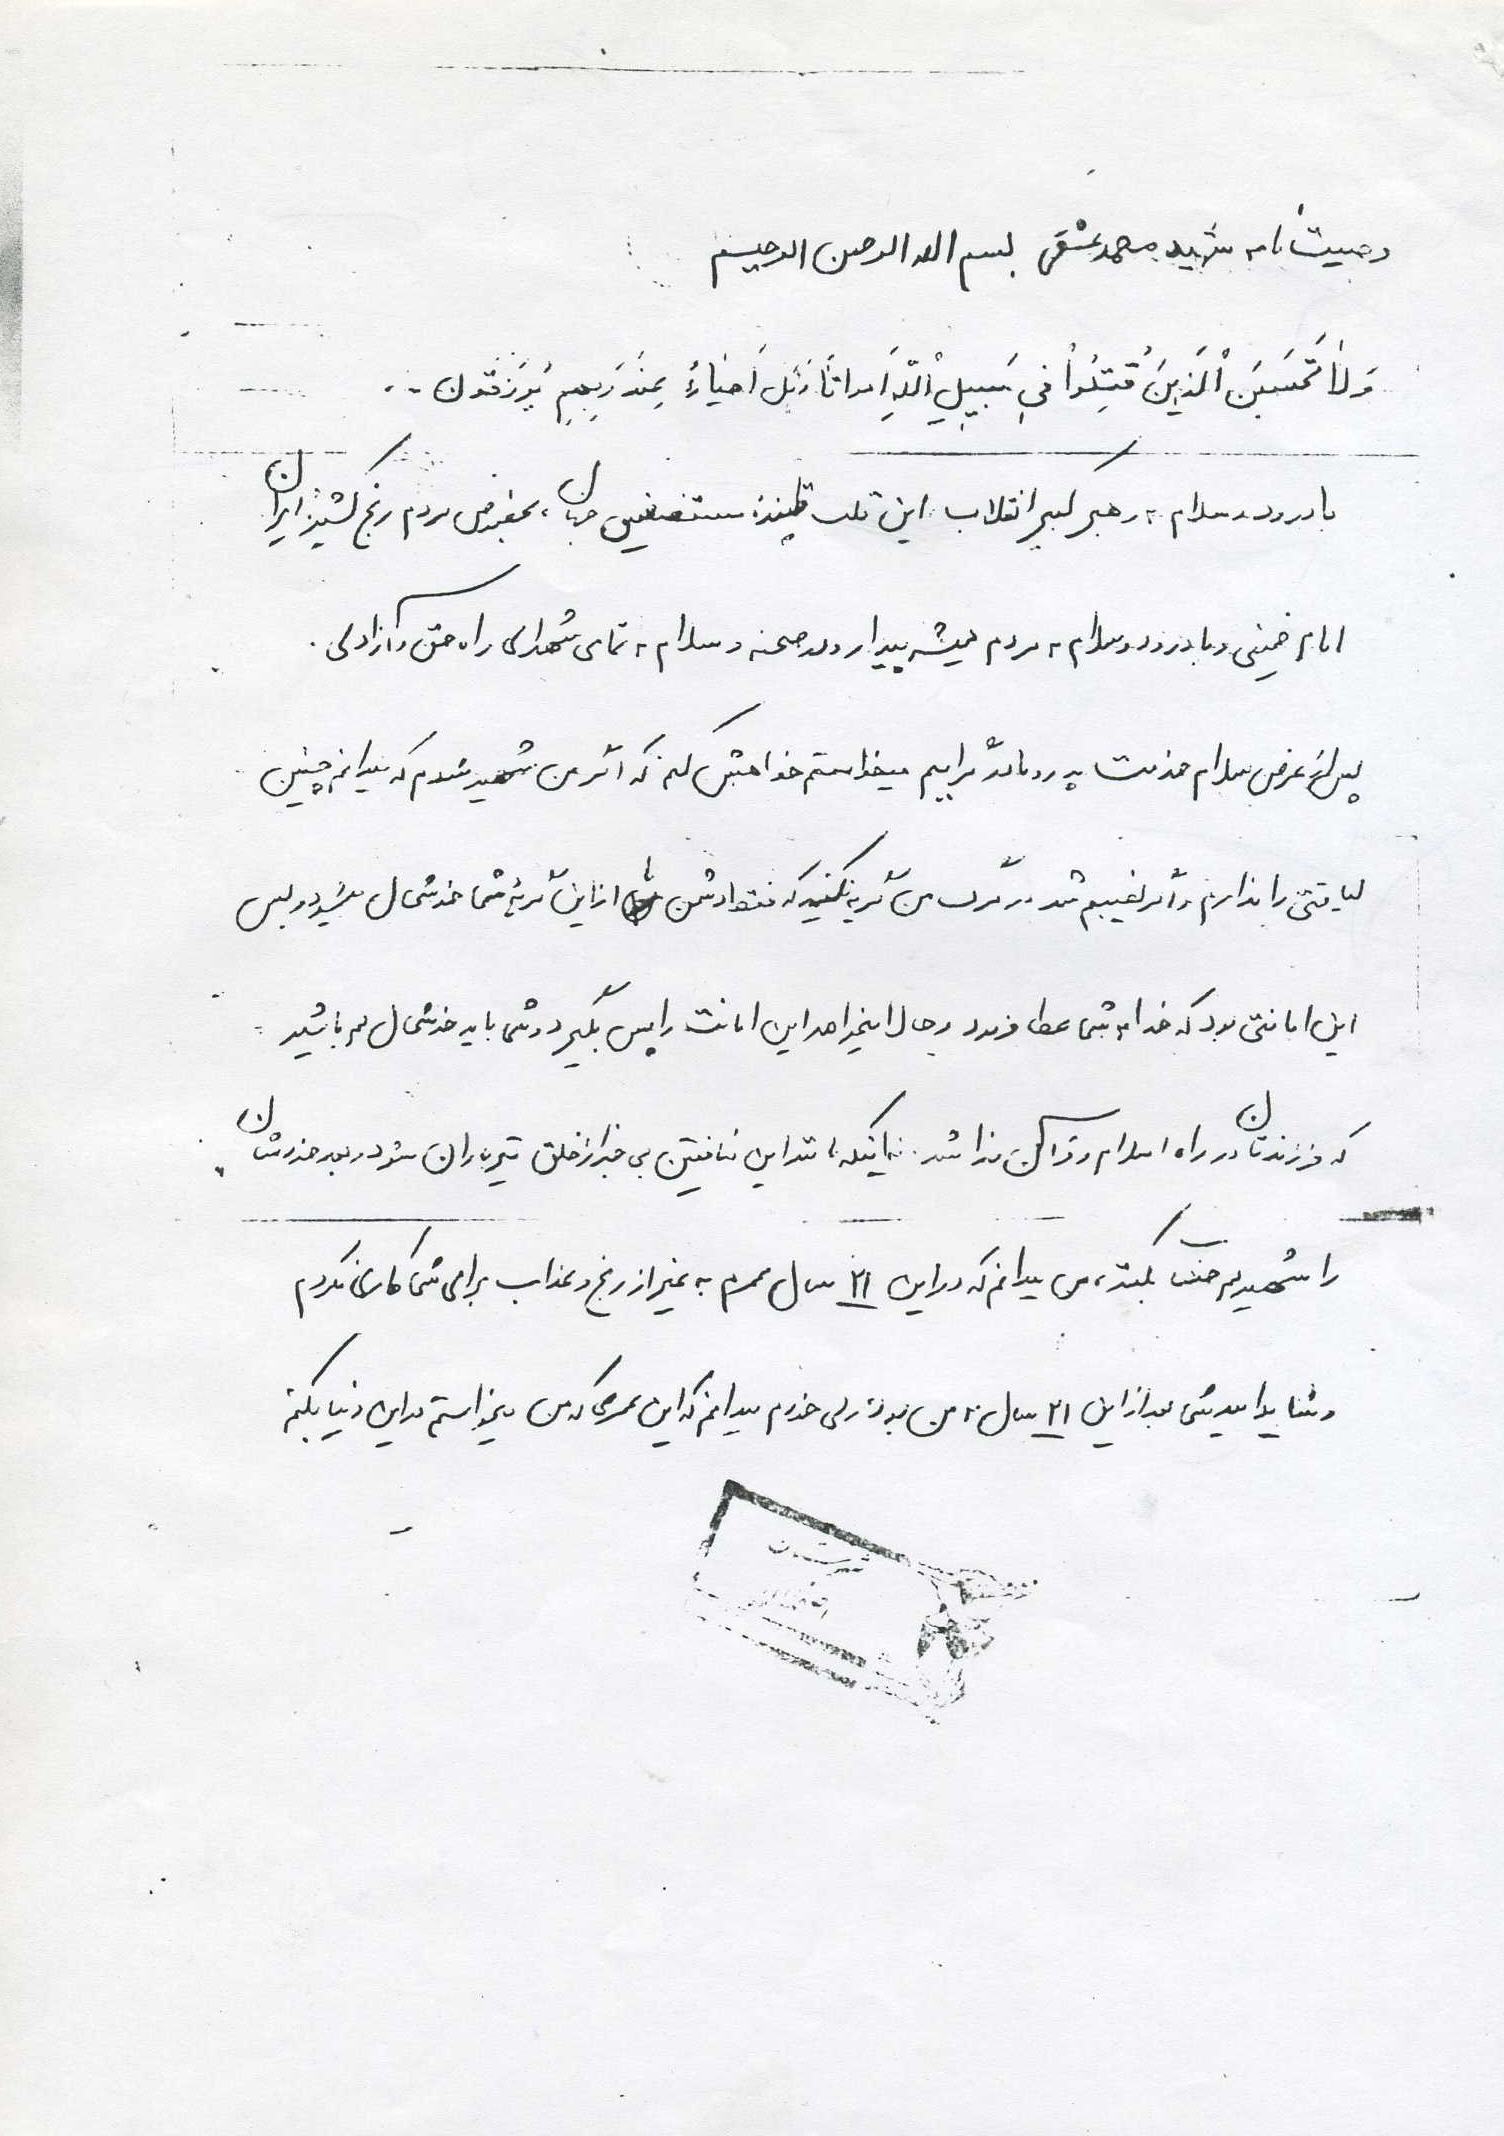 وصیت نامه شهید محمد عشقی بسم الله الرحمن الرحیم
وَلاٰ تَحْسَبَنَ اْلَذینَ قُتِلُواْ فی سَبیلِ اْللّهِ اَمواتاً بَل اَحیٰاءُ عِندَ رَبِهِم یُرزَقُون ..
با درود و سلام به رهبر کبیر انقلاب این قلب تپندهٔ مستضعفین جهان ، بخصوص مردم رنج کشیده ایران
امام خمینی و با درود و سلام به مردم همیشه بیدار در صحنه و سلام به تمامی شهدای راه حق و آزادگی .
پس از عرض سلام خدمت پدر و مادر گرامیم میخواستم خواهش کنم که اگر من شهید شدم که میدانم چنین
لیاقتی را ندارم و اگر نصیبم شد در مرگ من گریه نکنید که منتها دشمن از این گریهٔ شما خوشحال میشود و بس
این امانتی بود که خدا به شما عطا فرمود و حال میخواهد این امانت را پس بگیرد و شما باید خوشحال هم باشید
که فرزندتان در راه اسلام و قرآن فدا شد نه اینکه مانند این منافقین بی خبر از خلق تیرباران شود و بعد خودشان
را شهید هم حساب بکنند ، من میدانم که در این ۲۱ سال عمرم به غیر از رنج و عذاب برای شما کاری نکردم
و شاید امید شما بعد از این ۲۱ سال به من بود ولی خودم میدانم که این عمری که من میخواستم در این دنیا بکنم